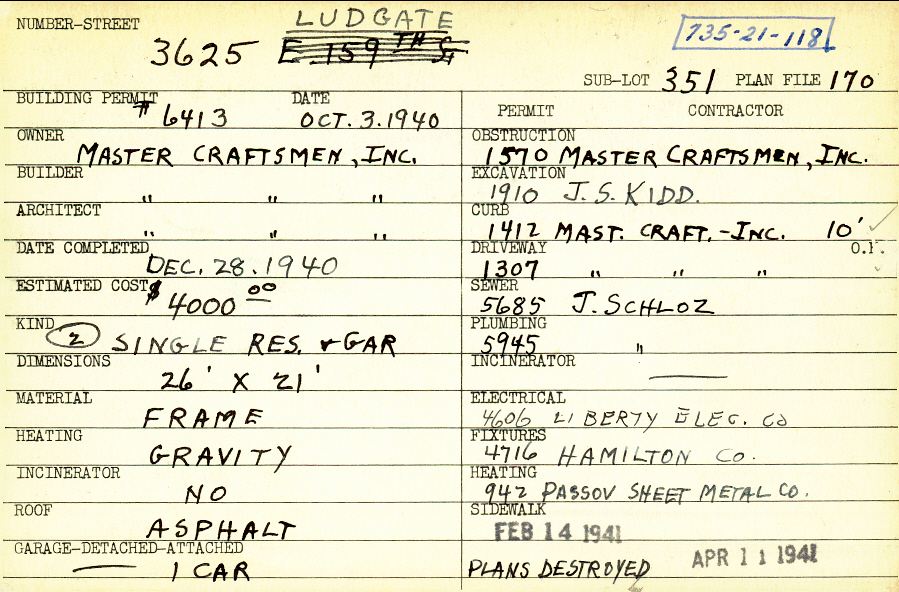 NUMBER-STREET LUDGATE
3625 E 159TH St 735-21-118
SUB-LOT 351 PLAN FILE 170
BUILDING PERMIT # 6413 DATE OCT. 3. 1940
OWNER MASTER CRAFTSMEN, INC.
BUILDER " " "
ARCHITECT " " "
DATE COMPLETED DEC. 28. 1940
ESTIMATED COST $ 4000 00
KIND 2 SINGLE RES. & GAR
DIMENSIONS 26' X 21'
MATERIAL FRAME
HEATING GRAVITY
INCINERATOR NO
ROOF ASPHALT
GARAGE-DETACHED-ATTACHED 1 CAR
PERMIT CONTRACTOR
OBSTRUCTION 1570 MASTER CRAFTSMEN, INC.
EXCAVATION 1910 J. S. KIDD.
CURB 1412 MAST. CRAFT. - INC. 10'
DRIVEWAY 1307 " " " O.K.
SEWER 5685 J. SCHLOZ
PLUMBING 5945 "
INCINERATOR —
ELECTRICAL 4606 LIBERTY ELEC. Co
FIXTURES 4716 HAMILTON Co.
HEATING 942 PASSOV SHEET METAL Co.
SIDEWALK FEB 14 1941
PLANS DESTROYED APR 11 1941